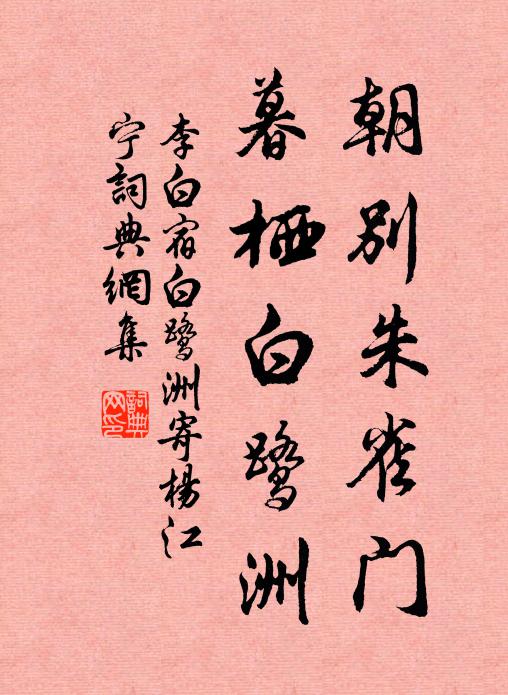 朝别朱雀门
暮栖白鹭洲
李白宿白鹭洲寄楊江
宁詞典網集
詞典
网印